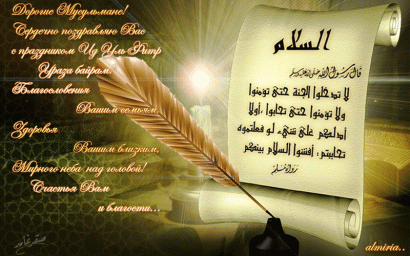 Дорогие Мусульмане!
Сердечно поздравляю Вас
с праздником Ид Уль Фитр
Ураза байрам.
Благословения
Вашим семьям,
Здоровья
Вашим близким,
Мирного неба над головой!
Счастья Вам
и благости...
السلام
قال رسول الله صلى الله عليه وسلم
لا تدخلوا الجنة حتى تؤمنوا
ولا تؤمنوا حتى تحابوا ,أولا
أدلكم على شيء لو فعلتموه
تحاببتم : أفشوا السلام بينكم
رواه مسلم
almiria..